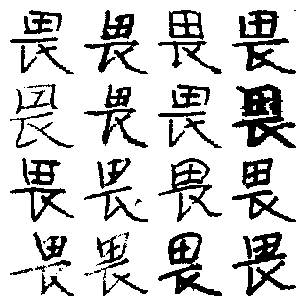 畏畏畏畏
畏畏畏畏
畏畏畏畏
畏畏畏畏